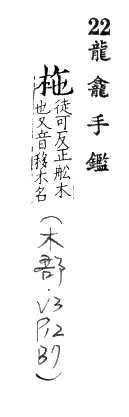 22龍龕手鑑
柂徒可反正舩木
也又音移木名
(木部.V3
P12
B7)